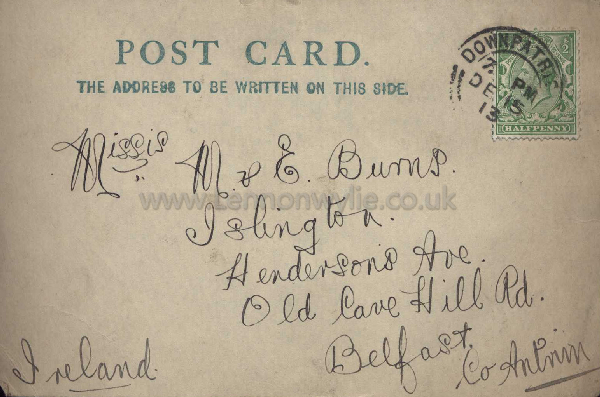 POST CARD.
THE ADDRESS TO BE WRITTEN ON THIS SIDE.
DOWNPATRICK
7 PM
DE 15
13
HALFPENNY
Missis M. & E. Burns.
www.lennonwylie.co.uk
Islington.
Hendersons Ave.
Old Cave Hill Rd.
Belfast.
Co Antrim
Ireland.